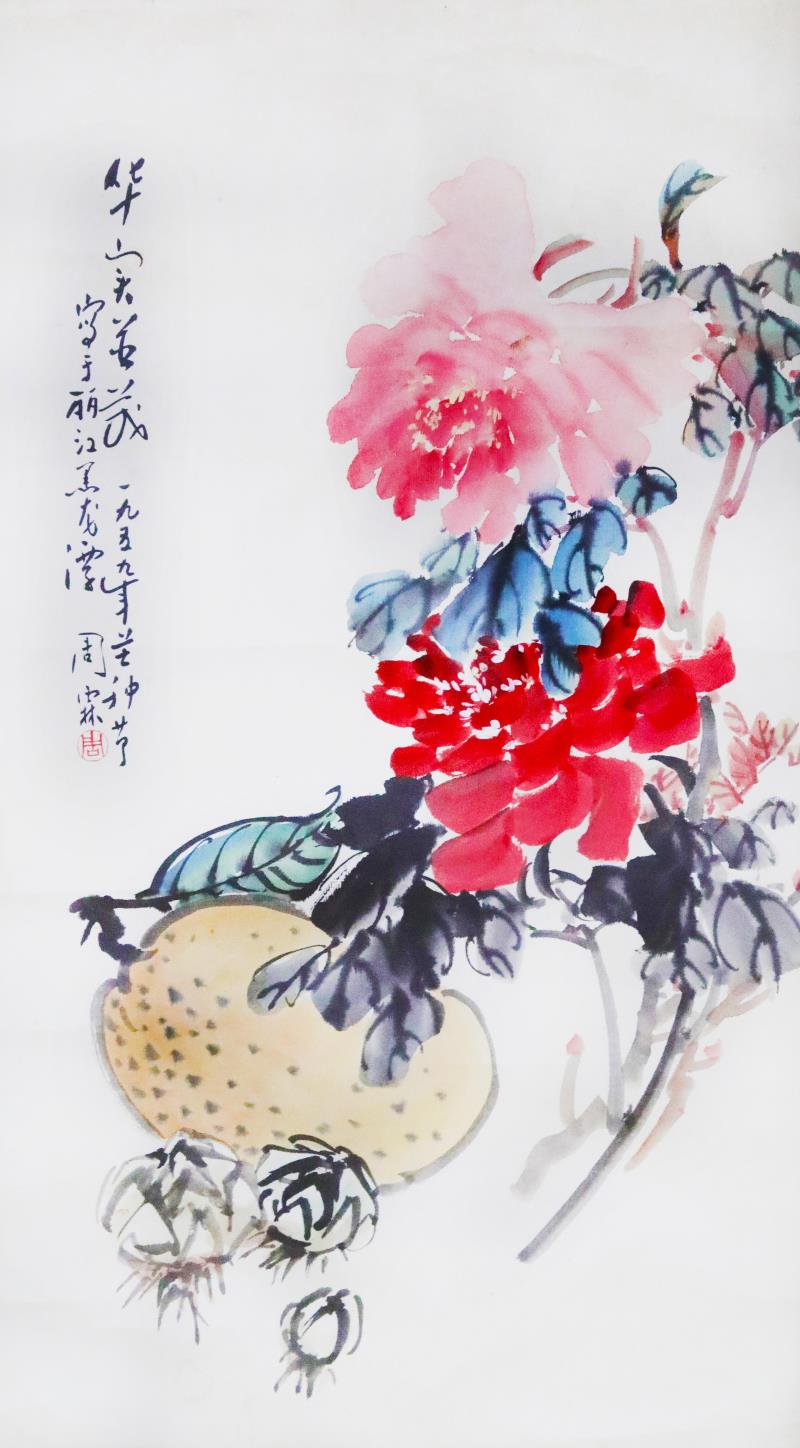 华实并茂 一九五九年芒种节
写于丽江黑龙潭 周霖
周